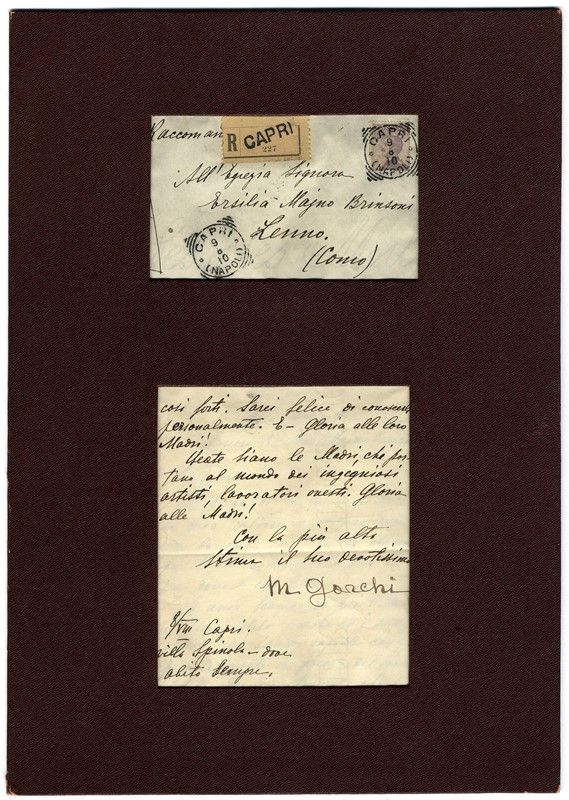 Raccoman
R CAPRI
227
CAPRI
9
8
10
(NAPOLI)
All' Egregia Signora
Ersilia Majno Brinsoni
Lenno.
(Como)
CAPRI
9
8
10
(NAPOLI)
così forti. Sarei felice di conoscer
personalmente. E – Gloria alle loro
Madri!
Beate siano le Madri, che por-
tano al mondo dei ingegniosi
artisti, lavoratori onesti. Gloria
alle Madri!
Con la più alta
stima il suo devotissimo
M Gorchi
8/VIII Capri.
villa Spinola – dove
abito sempre.